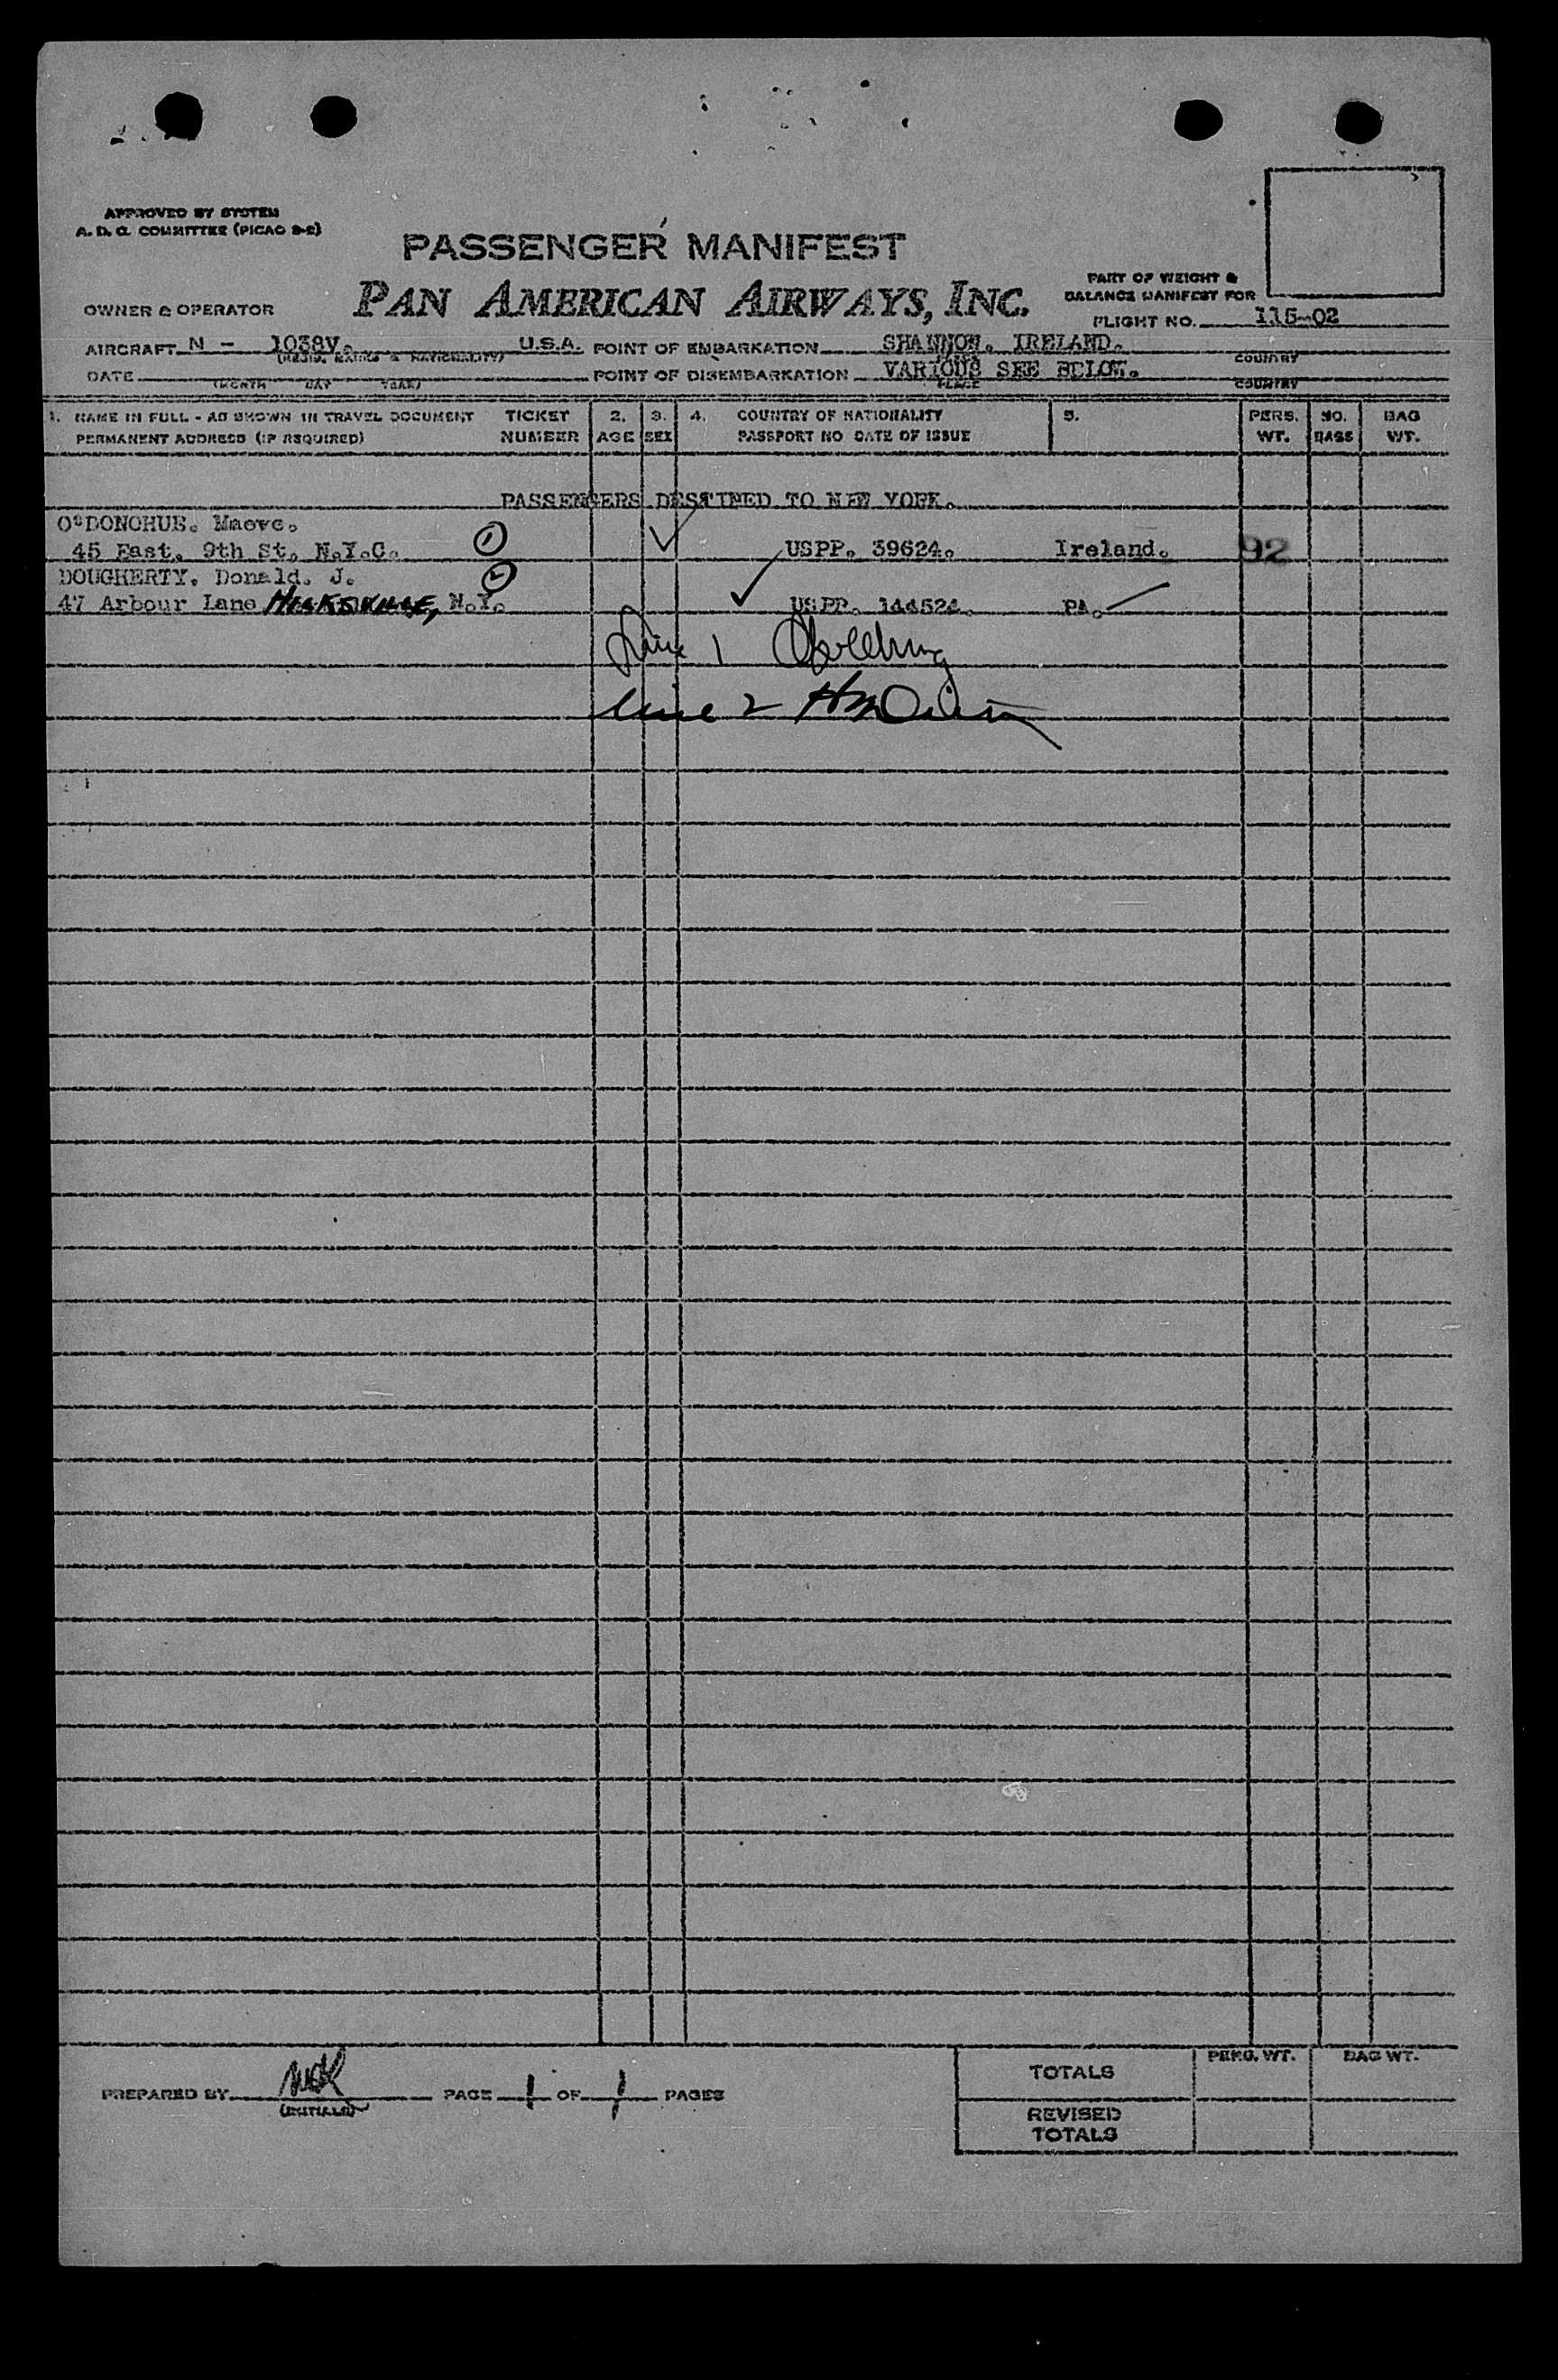 APPROVED BY SYSTEM
A. D. C. COMMITTEE (PICAO 9-2)
PASSENGER MANIFEST
PAN AMERICAN AIRWAYS, INC.
PART OF WEIGHT &
BALANCE MANIFEST FOR
OWNER & OPERATOR
FLIGHT NO. 115-02
AIRCRAFT N - 1038V. U.S.A. POINT OF EMBARKATION SHANNON. IRELAND.
(REGIS. MARKS & NATIONALITY) COUNTRY
DATE POINT OF DISEMBARKATION VARIOUS SEE BELOW.
(MONTH DAY YEAR) PLACE COUNTRY
1. NAME IN FULL - AS SHOWN IN TRAVEL DOCUMENT TICKET 2. 3. 4. COUNTRY OF NATIONALITY 5. PERS. NO. BAG
PERMANENT ADDRESS (IF REQUIRED) NUMBER AGE SEX PASSPORT NO DATE OF ISSUE WT. BAGS WT.
PASSENGERS DESTINED TO NEW YORK.
O'DONOHUE. Maeve.
45 East. 9th St. N.Y.C. 1 USPP. 39624. Ireland. 92
DOUGHERTY. Donald. J. 2
47 Arbour Lane N.Y. USPP. 144524. PA.
Line 1
Line 2
PREPARED BY PAGE 1 OF 1 PAGES
(INITIALS)
TOTALS PERS. WT. BAG WT.
REVISED
TOTALS